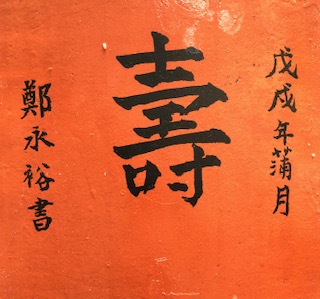 戊戌年蒲月
壽
鄭永裕書